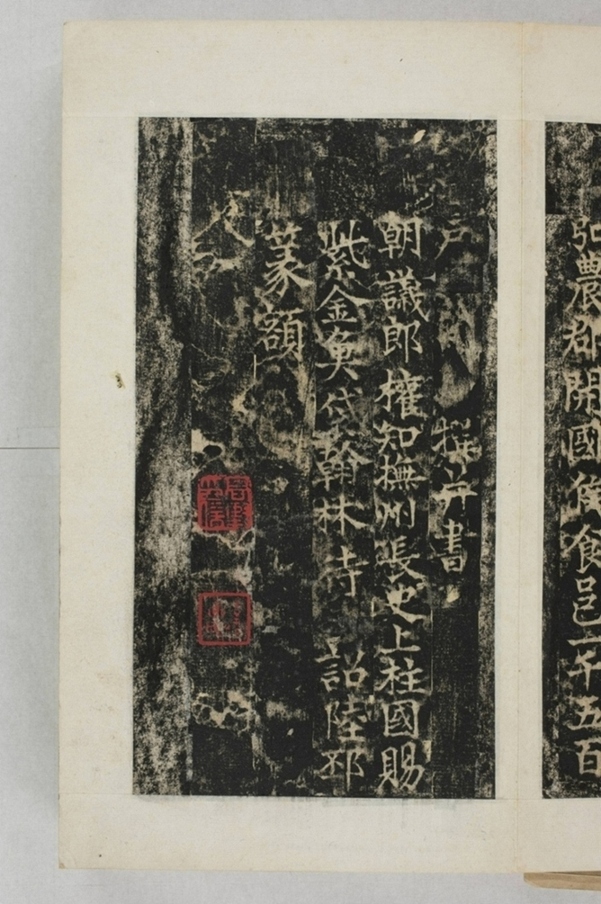 弘農郡開國侯食邑一千五百
戶 撰并書
朝議郎權知撫州長史上柱國賜
紫金魚袋翰林待 詔陸邳
篆額